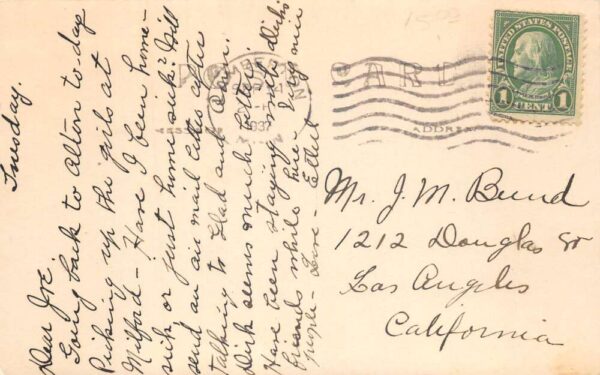 Tuesday.
Dear Joe.
Going back to Alton to-day
Picking up the girls at
Milford - Have I been home-
sick or just home sick? Will
send an air mail letter after
talking to Glad and Clair.
Dick seems much better.
Have been staying with Dick's
friends while here - Very nice
people - Love - Ethel
15.00
POST CARD
ADDRESS
1932
UNITED STATES POSTAGE
1 CENT 1
Mr. J. M. Bund
1212 Douglas St
Los Angeles
California